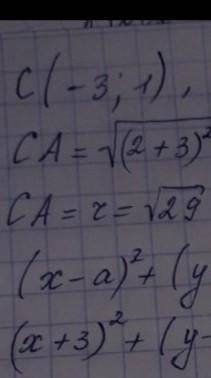 C(-3; 1),
CA = √(2+3)²
CA = r = √29
(x-a)² + (y
(x+3)² + (y-